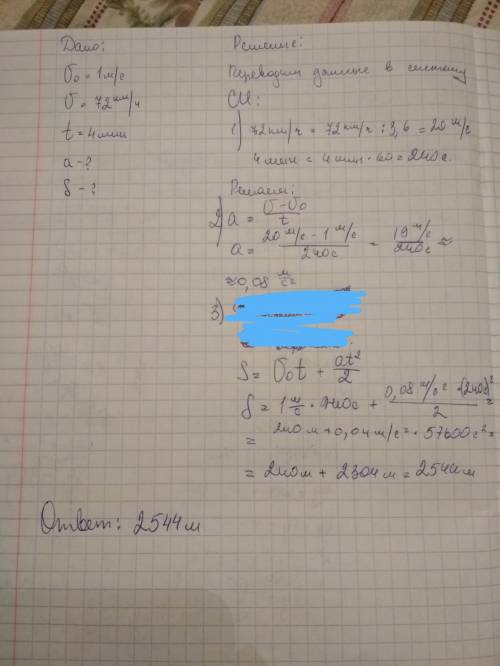 Дано:
υ₀ = 1 м/с
υ = 72 км/ч
t = 4 мин
a - ?
S - ?
Решение:
Переводим данные в систему
СИ:
1) 72 км/ч = 72 км/ч : 3,6 = 20 м/с
4 мин = 4 мин · 60 = 240 с.
Решаем:
2) a = (υ - υ₀)/t
a = (20 м/с - 1 м/с)/240 с = (19 м/с)/(240 с) ≈
≈ 0,08 м/с²
3)
S = υ₀t + at²/2
S = 1 м/с · 240 с + (0,08 м/с² · (240 с)²)/2 =
= 240 м + 0,04 м/с² · 57600 с² =
= 240 м + 2304 м = 2544 м
Ответ: 2544 м